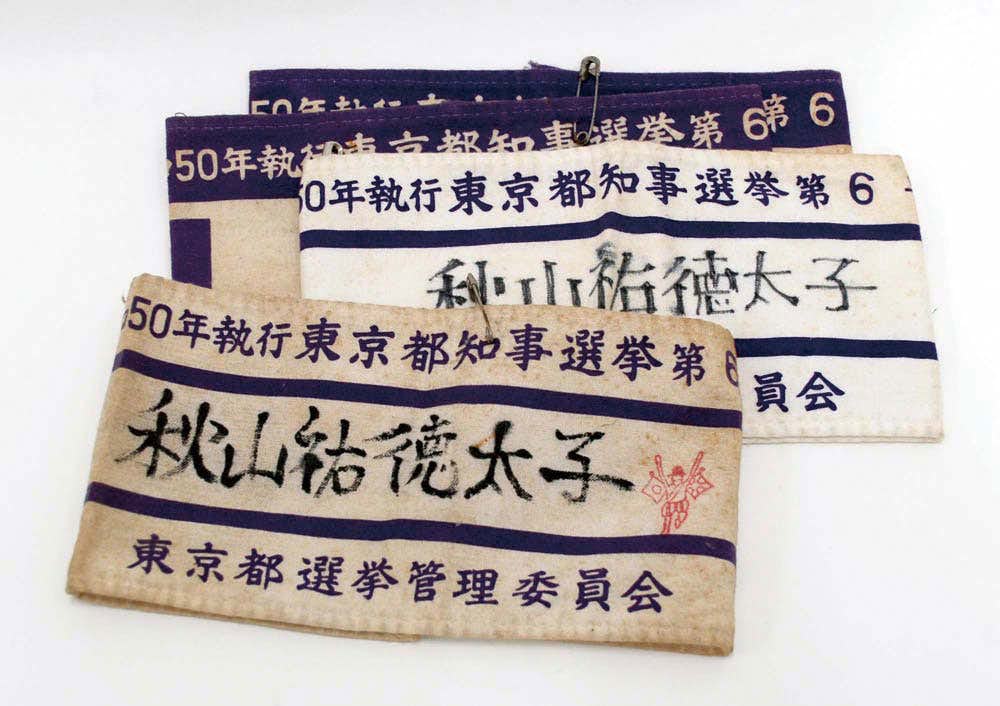 50年執行東京
第6
50年執行東京都知事選挙第6
50年執行東京都知事選挙第6
秋山祐徳太子
員会
50年執行東京都知事選挙第6
秋山祐徳太子
東京都選挙管理委員会